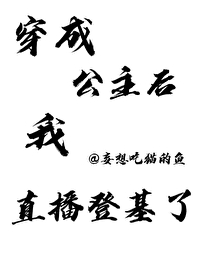 穿成
公主后
我
@妄想吃猫的鱼
直播登基了